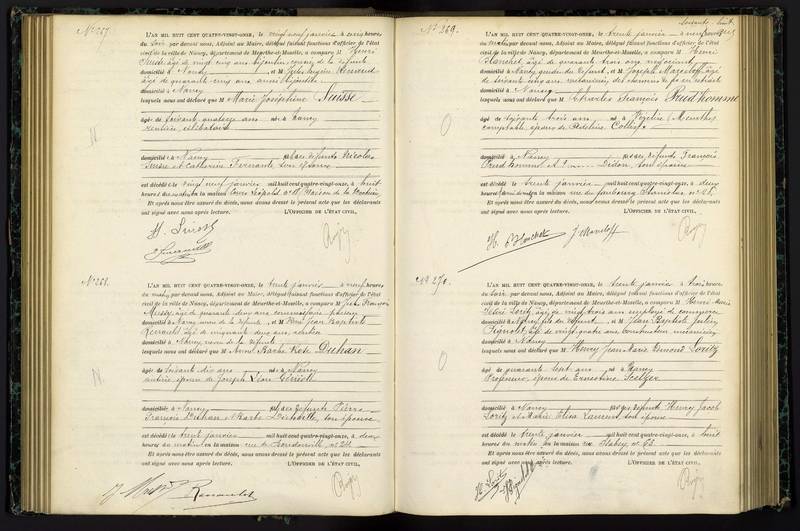 N° 267.
L'AN MIL HUIT CENT QUATRE-VINGT-ONZE, le vingt neuf janvier à cinq heures
du soir par devant nous, Adjoint au Maire, délégué faisant fonctions d'officier de l'état
civil de la ville de Nancy, département de Meurthe-et-Moselle, a comparu M Henri
Suisse âgé de vingt cinq ans bijoutier, de la défunte
domicilié à Nancy, et M Jules Renaud
âgé de quarante cinq ans bijoutier
domicilié à Nancy
lesquels nous ont déclaré que M Marie Joséphine Suisse
âgée de soixante ans née à Nancy
rentière, célibataire
domiciliée à Nancy, fille des défunts Nicolas
Suisse et Catherine son épouse
est décédée le vingt neuf janvier mil huit cent quatre-vingt-onze, à huit
heures du matin en la maison Cours Léopold
Et après nous être assuré du décès, nous avons dressé le présent acte que les déclarants
ont signé avec nous après lecture. L'OFFICIER DE L'ÉTAT CIVIL,
H. Suisse
N° 268.
L'AN MIL HUIT CENT QUATRE-VINGT-ONZE, le trente janvier à neuf heures
du matin, par devant nous, Adjoint au Maire, délégué faisant fonctions d'officier de l'état
civil de la ville de Nancy, département de Meurthe-et-Moselle, a comparu M
âgé de quarante deux ans commissaire
domicilié à Nancy de la défunte, et M Jean Baptiste
âgé de cinquante deux ans, rentier
domicilié à Nancy de la défunte
lesquels nous ont déclaré que M Anne Barbe Duhan
âgée de soixante dix ans née à Nancy
épouse de Joseph Léon
domiciliée à Nancy, fille des défunts Pierre
François Duhan et Barbe son épouse
est décédée le trente janvier mil huit cent quatre-vingt-onze, à deux
heures du matin en la maison rue de Boudonville, n° 24
Et après nous être assuré du décès, nous avons dressé le présent acte que les déclarants
ont signé avec nous après lecture. L'OFFICIER DE L'ÉTAT CIVIL,
N° 269.
L'AN MIL HUIT CENT QUATRE-VINGT-ONZE, le trente janvier à neuf heures
du matin, par devant nous, Adjoint au Maire, délégué faisant fonctions d'officier de l'état
civil de la ville de Nancy, département de Meurthe-et-Moselle, a comparu M Henri
Blanchet âgé de quarante trois ans négociant
domicilié à Nancy, gendre du défunt, et M Joseph âgé
de soixante cinq ans des chemins de fer en retraite
domicilié à Nancy
lesquels nous ont déclaré que M Charles François Prud'homme
âgé de soixante trois ans né à Vézelise (Meurthe)
comptable, époux de Adeline
domicilié à Nancy, fils des défunts François
Prud'homme et Didon, son épouse
est décédé le trente janvier mil huit cent quatre-vingt-onze, à deux
heures du matin en la maison rue du faubourg Stanislas
Et après nous être assuré du décès, nous avons dressé le présent acte que les déclarants
ont signé avec nous après lecture. L'OFFICIER DE L'ÉTAT CIVIL,
H. Blanchet
N° 270.
L'AN MIL HUIT CENT QUATRE-VINGT-ONZE, le trente janvier à trois heures
du soir, par devant nous, Adjoint au Maire, délégué faisant fonctions d'officier de l'état
civil de la ville de Nancy, département de Meurthe-et-Moselle, a comparu M Henri Marie
Loritz âgé de vingt trois ans employé de commerce
domicilié à Nancy, fils du défunt, et M Jean Baptiste Julien
âgé de vingt quatre ans, constructeur mécanicien
domicilié à Nancy
lesquels nous ont déclaré que M Henry Jean Marie Edmond Loritz
âgé de quarante sept ans né à Nancy
Professeur, époux de Ernestine
domicilié à Nancy, fils des défunts Henry Jacob
Loritz et Marie Elisa Laurent son épouse
est décédé le trente janvier mil huit cent quatre-vingt-onze, à huit
heures du matin en la maison rue
Et après nous être assuré du décès, nous avons dressé le présent acte que les déclarants
ont signé avec nous après lecture. L'OFFICIER DE L'ÉTAT CIVIL,
H. Loritz